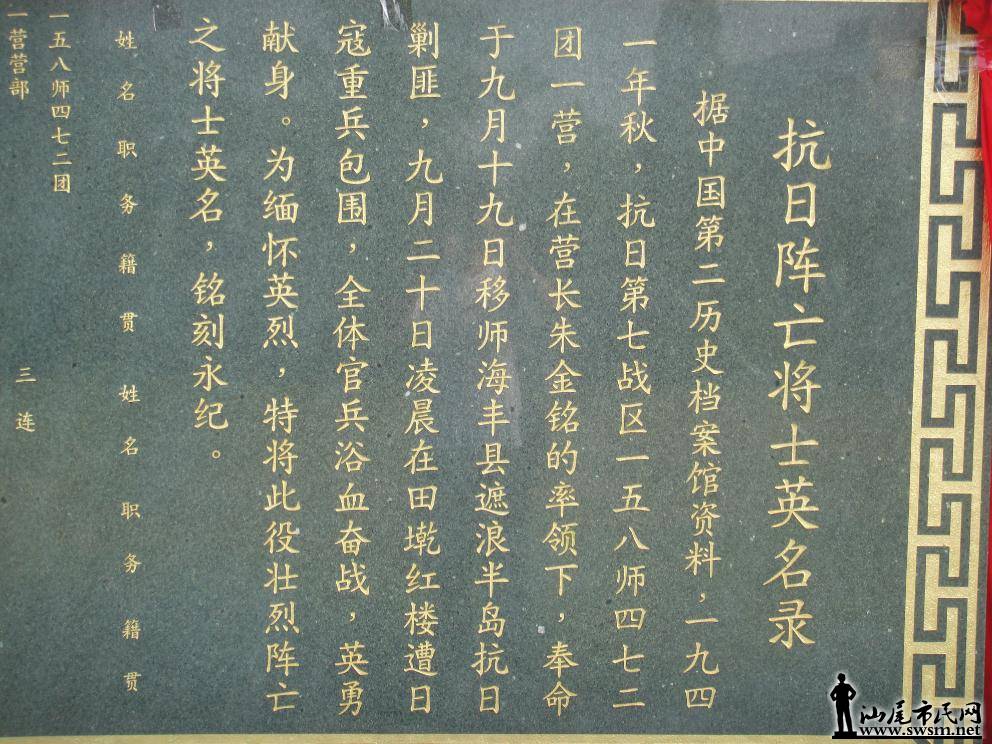 抗日阵亡将士英名录
据中国第二历史档案馆资料，一九四
一年秋，抗日第七战区一五八师四七二
团一营，在营长朱金铭的率领下，奉命
于九月十九日移师海丰县遮浪半岛抗日
剿匪，九月二十日凌晨在田墘红楼遭日
寇重兵包围，全体官兵浴血奋战，英勇
献身。为缅怀英烈，特将此役壮烈阵亡
之将士英名，铭刻永纪。
姓名职务籍贯 姓名职务籍贯
一五八师四七二团
一营营部 三连
汕尾市民网
www.swsm.net